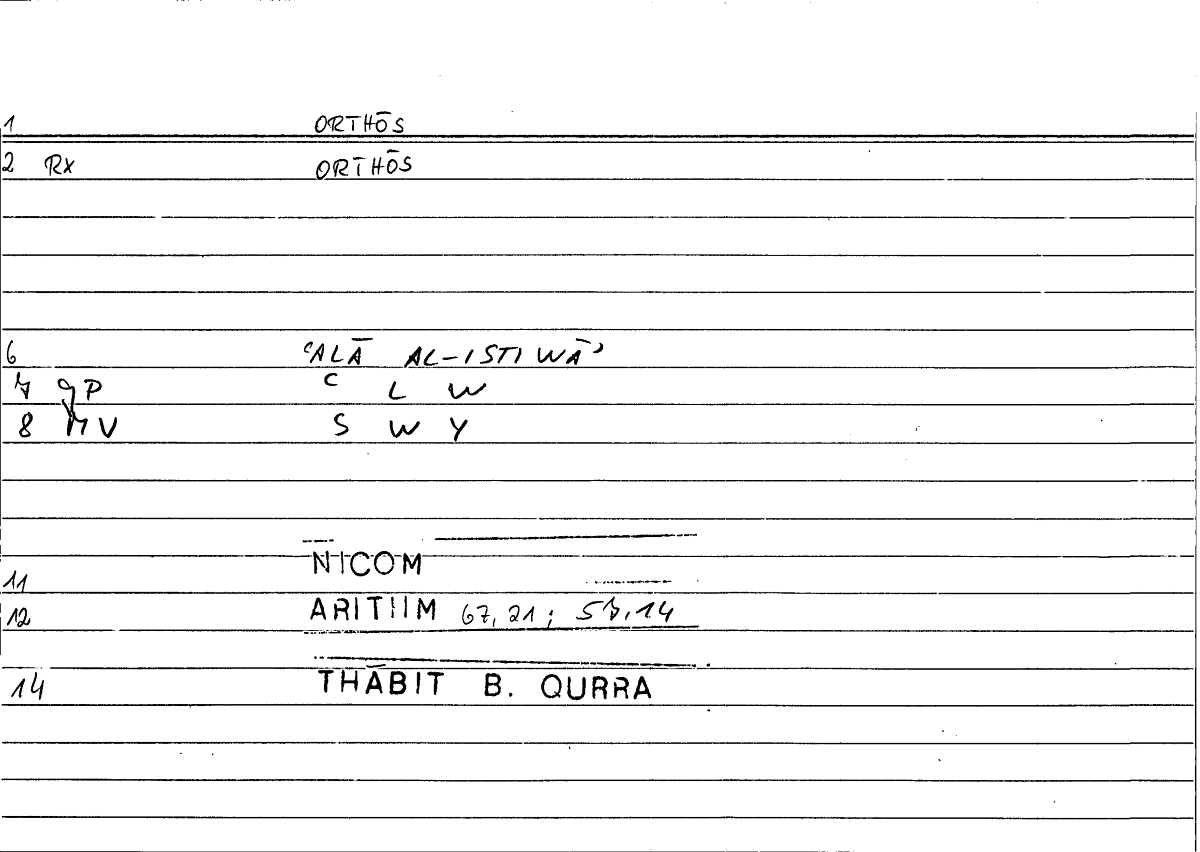 1 ORTHŌS
2 Rx ORTHŌS
6 ʿALĀ AL-ISTIWĀʾ
7 gP C L W
8 MV S W Y
11 NICOM
12 ARITHM 67, 21; 57, 14
14 THĀBIT B. QURRA